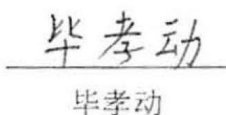 毕孝动
毕孝动